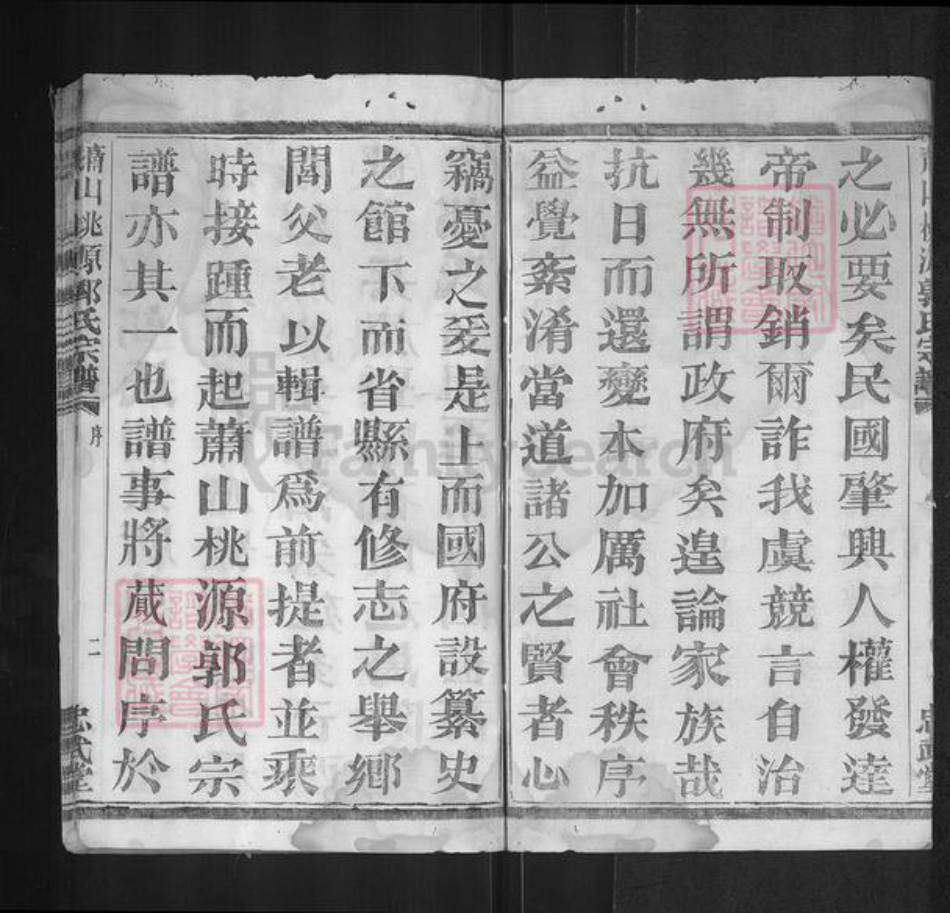 之必要矣民國肇興人權發達
帝制取銷爾詐我虞競言自治
幾無所謂政府矣遑論家族哉
抗日而還變本加厲社會秩序
益覺紊淆當道諸公之賢者心
竊憂之爰是上而國府設纂史
之館下而省縣有修志之舉鄉
閭父老以輯譜爲前提者並乘
時接踵而起蕭山桃源郭氏宗
譜亦其一也譜事將蕆問序於
蕭山桃源郭氏宗譜
序
二
忠武堂
FamilySearch